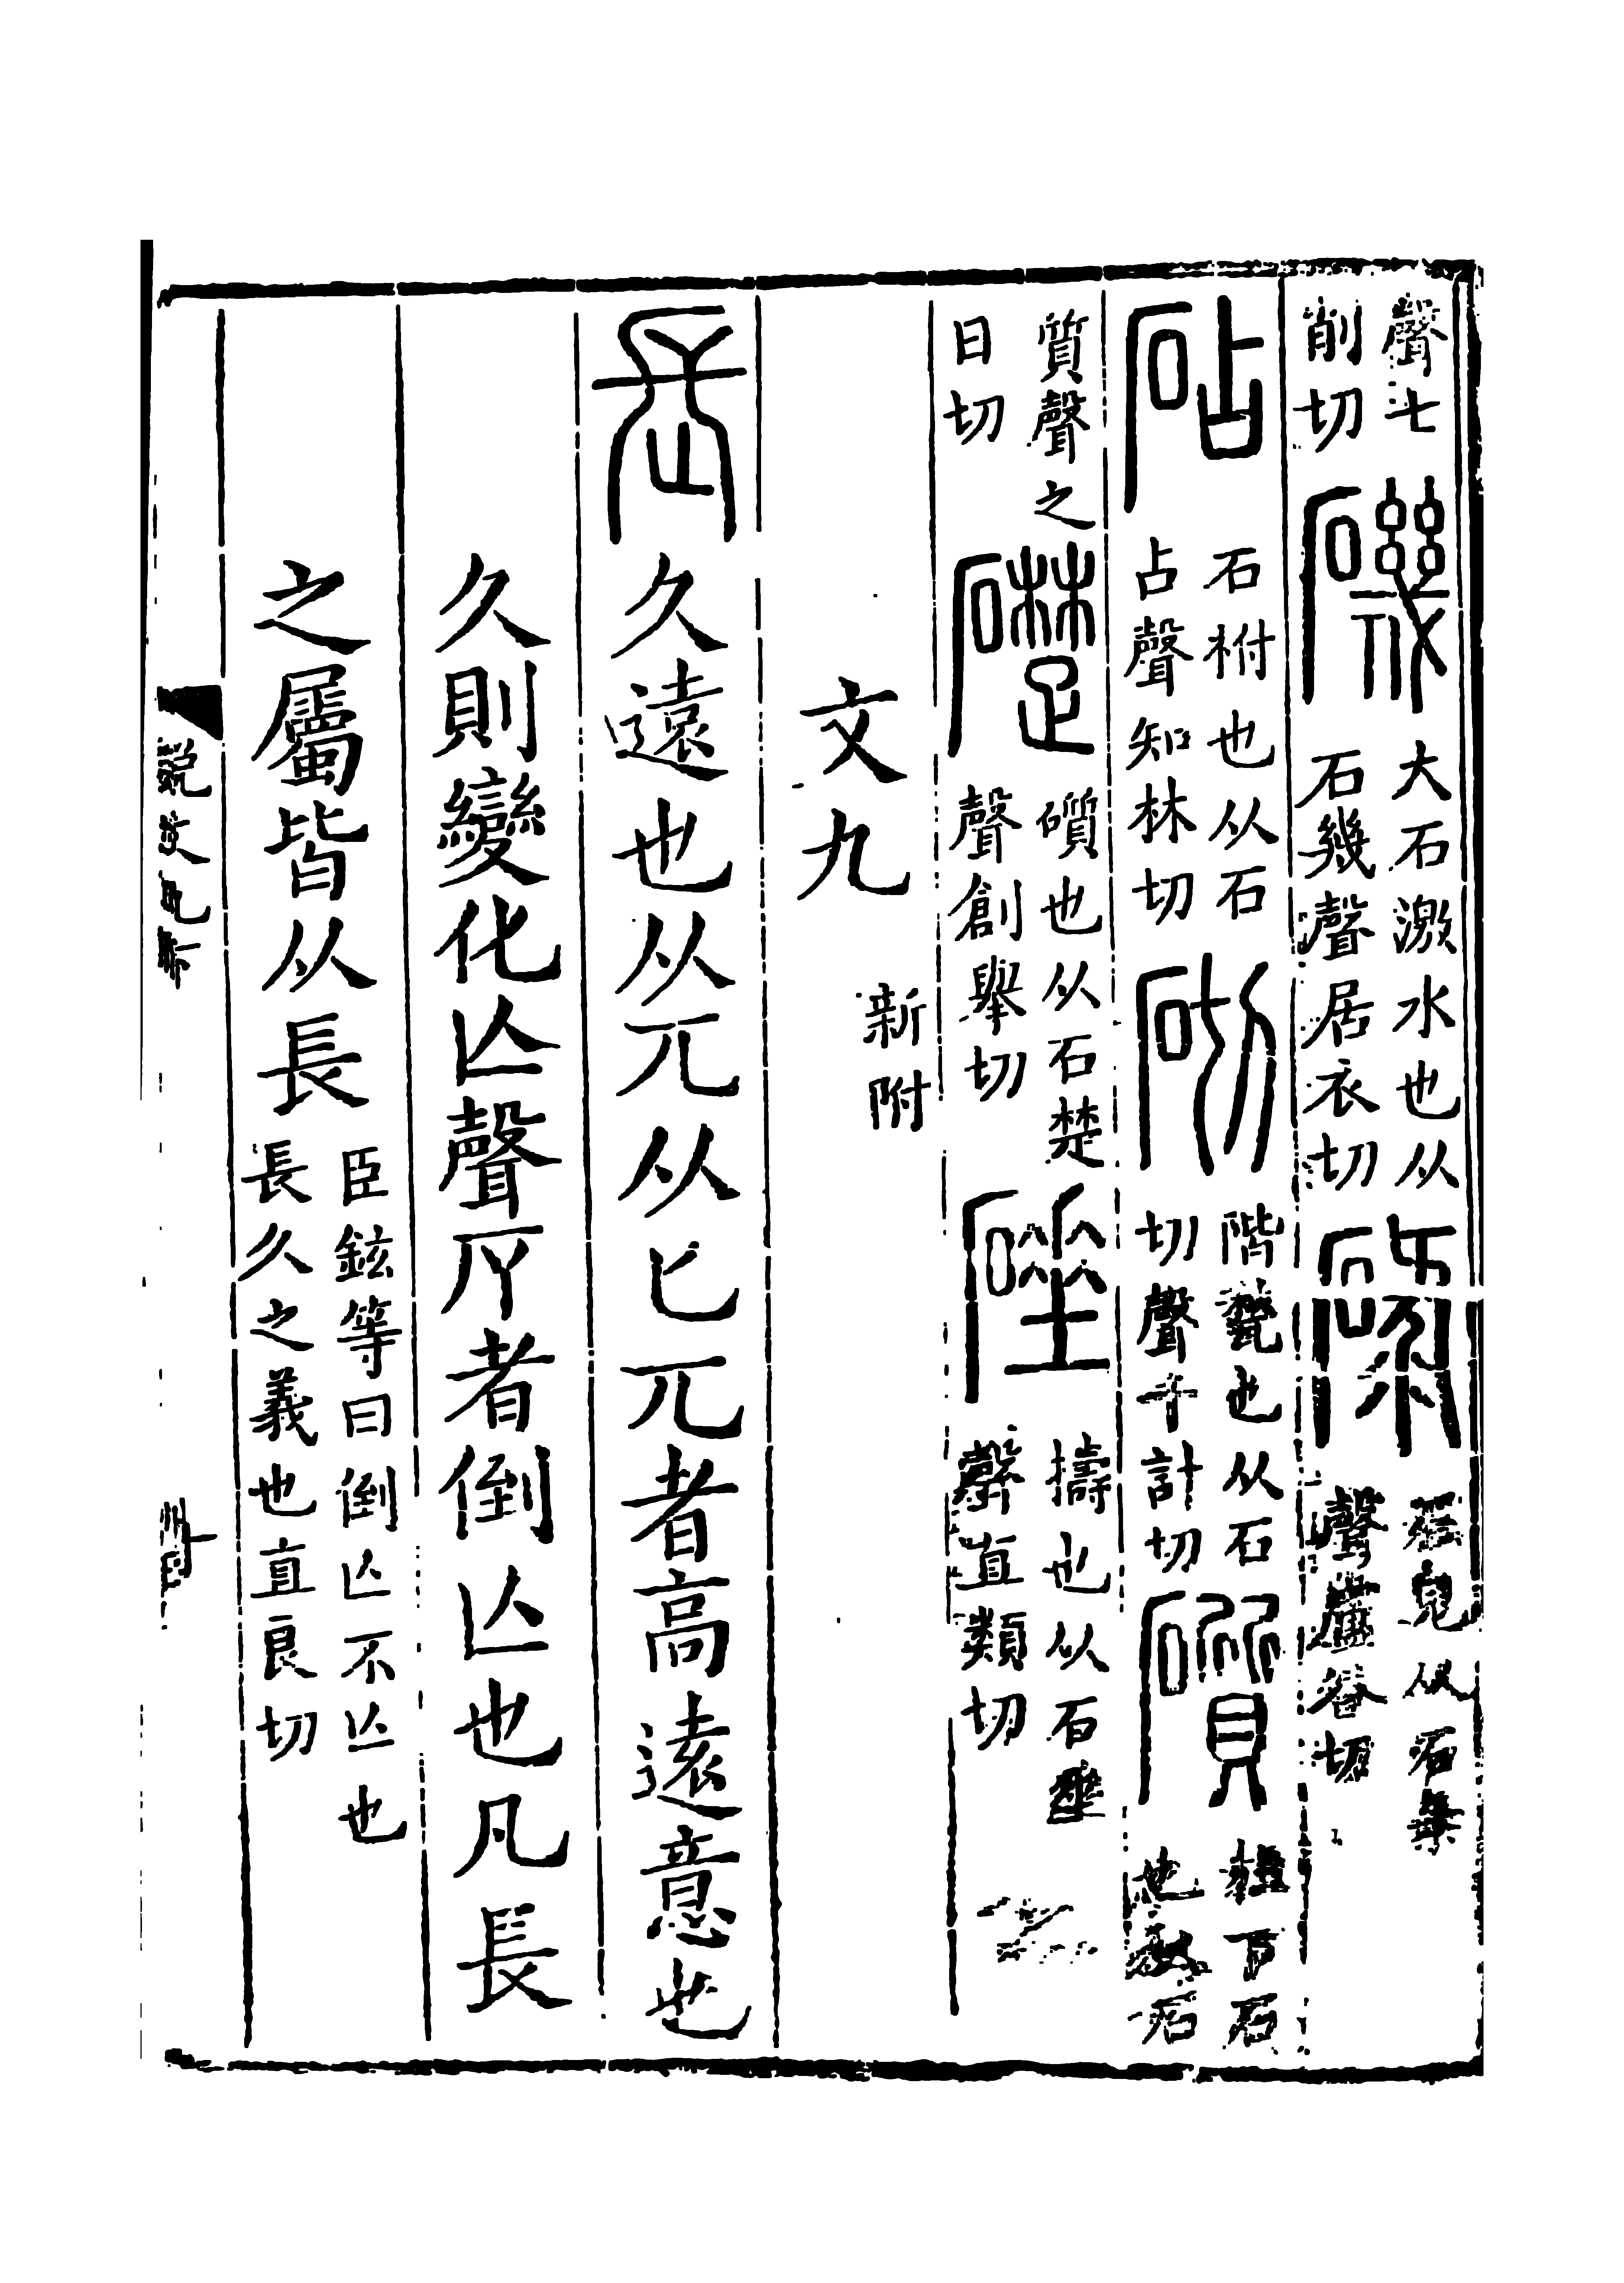 聲七削切磯大石激水也从石幾聲居衣切碌皃从石聲盧谷切
砧石柎也从石占聲知林切砌階甃也从石切聲千計切礩柱下石也从石
質聲之日切礎礩也从石楚聲創舉切硾擣也从石垂聲直類切
文九 新附
長久遠也从兀从匕兀者高遠意也
久則變化亾聲𠂾者倒亾也凡長
之屬皆从長臣鉉等曰倒亾不亾也長久之義也直良切
說文九下